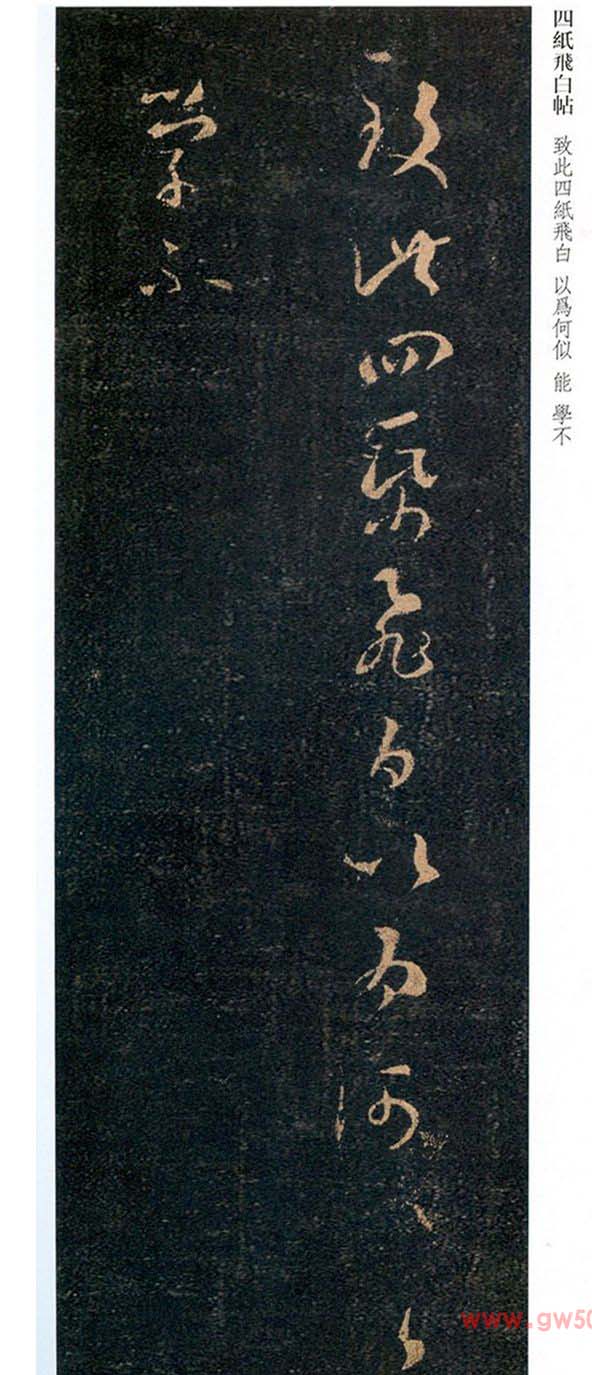 四紙飛白帖 致此四紙飛白 以爲何似 能 學不
致此四紙飛白以為何
學不
www.gw50